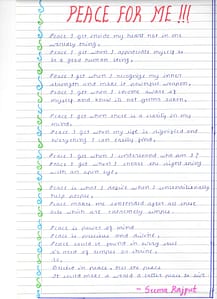 PEACE FOR ME !!!
Peace I get inside my heart not in any
worldly thing,
Peace I get when I appreciate myself to
be a good human being.
Peace I get when I recognize my inner
strength and make it powerful weapon,
Peace I get when I become aware of
myself and know is not gonna taken.
Peace I get when there is a clarity in my
mind,
Peace I get when my life is dignified and
everything I can easily find.
Peace I get when I understand who am I?
Peace I get when I choose the right thing
with an open eye.
Peace is what I desire when I unconditionally
help people,
Peace makes me contended after all those
acts which are extremely simple.
Peace is power of mind
Peace is precious and divine,
Peace could be found in every soul
it's need of someone to shine,
So,
Build in peace, but the peace
It could make a world a better place to live
- Seema Rajput